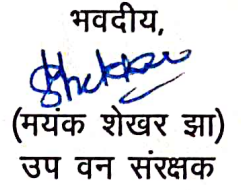 भवदीय,
(मयंक शेखर झा)
उप वन संरक्षक